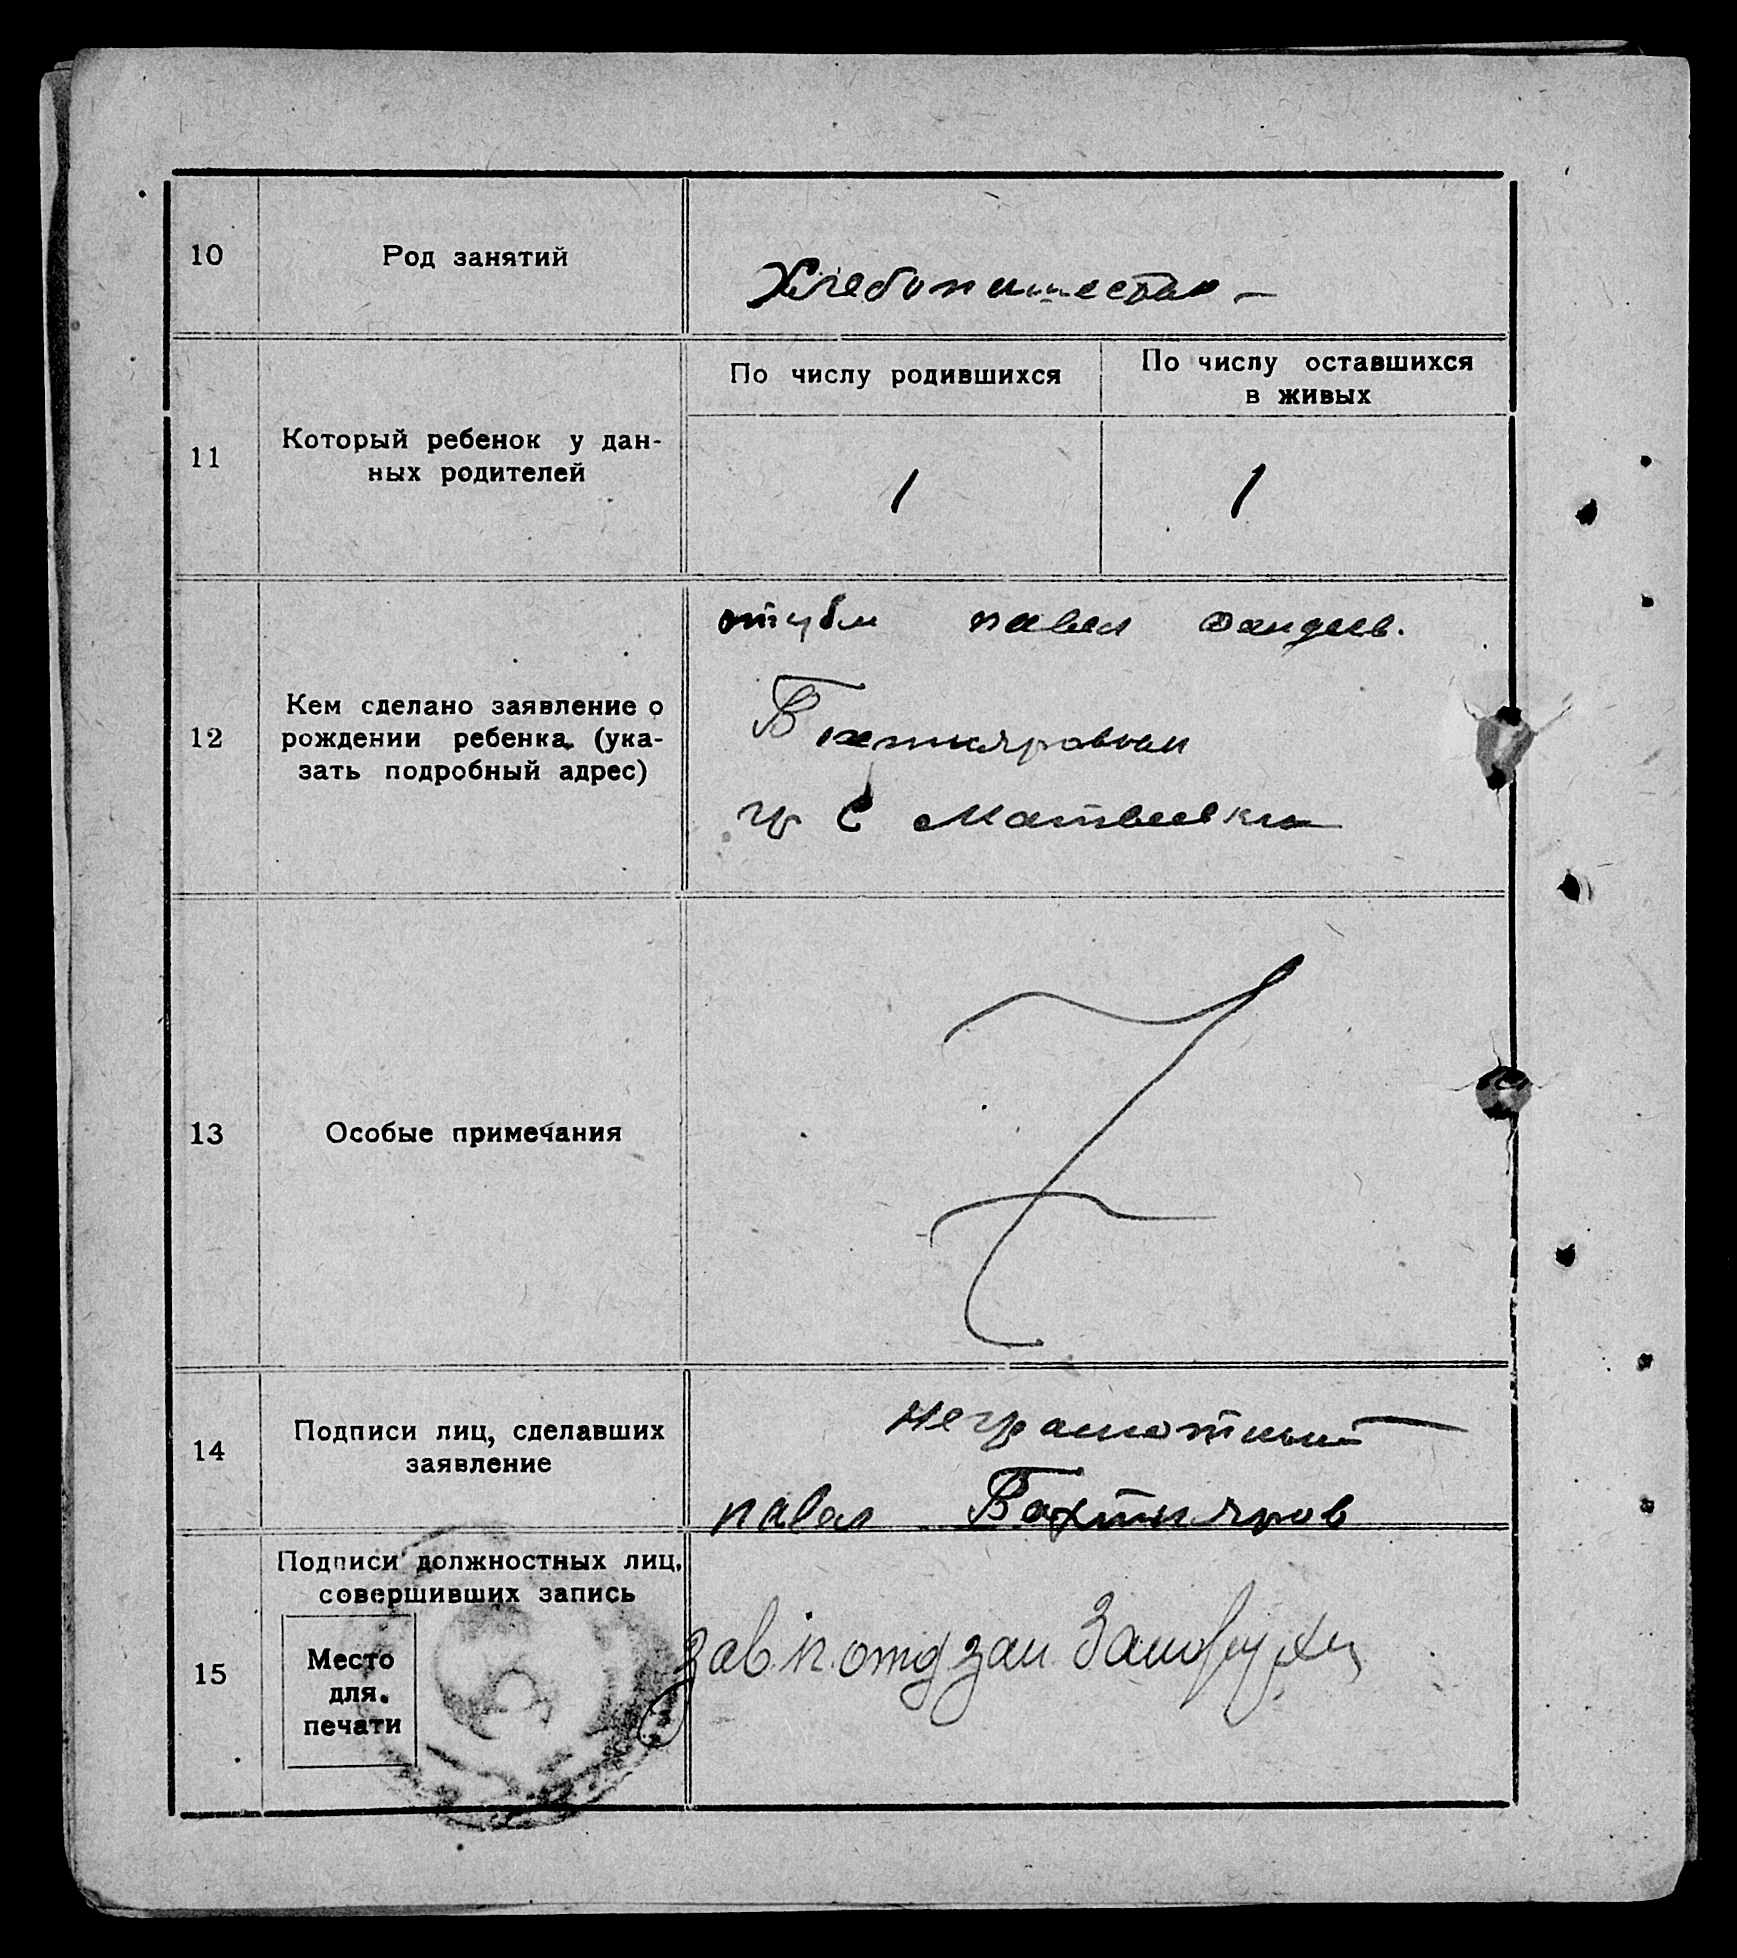 10
Род занятий
Хлебопашество
11
Который ребенок у дан-
ных родителей
По числу родившихся
По числу оставшихся
в живых
1
1
12
Кем сделано заявление о
рождении ребенка. (ука-
зать подробный адрес)
павел
гр С Матвеевки
13
Особые примечания
14
Подписи лиц, сделавших
заявление
неграмотный
павел Бахтияров
15
Подписи должностных лиц,
совершивших запись
Место
для
печати
зав. п. отд заг